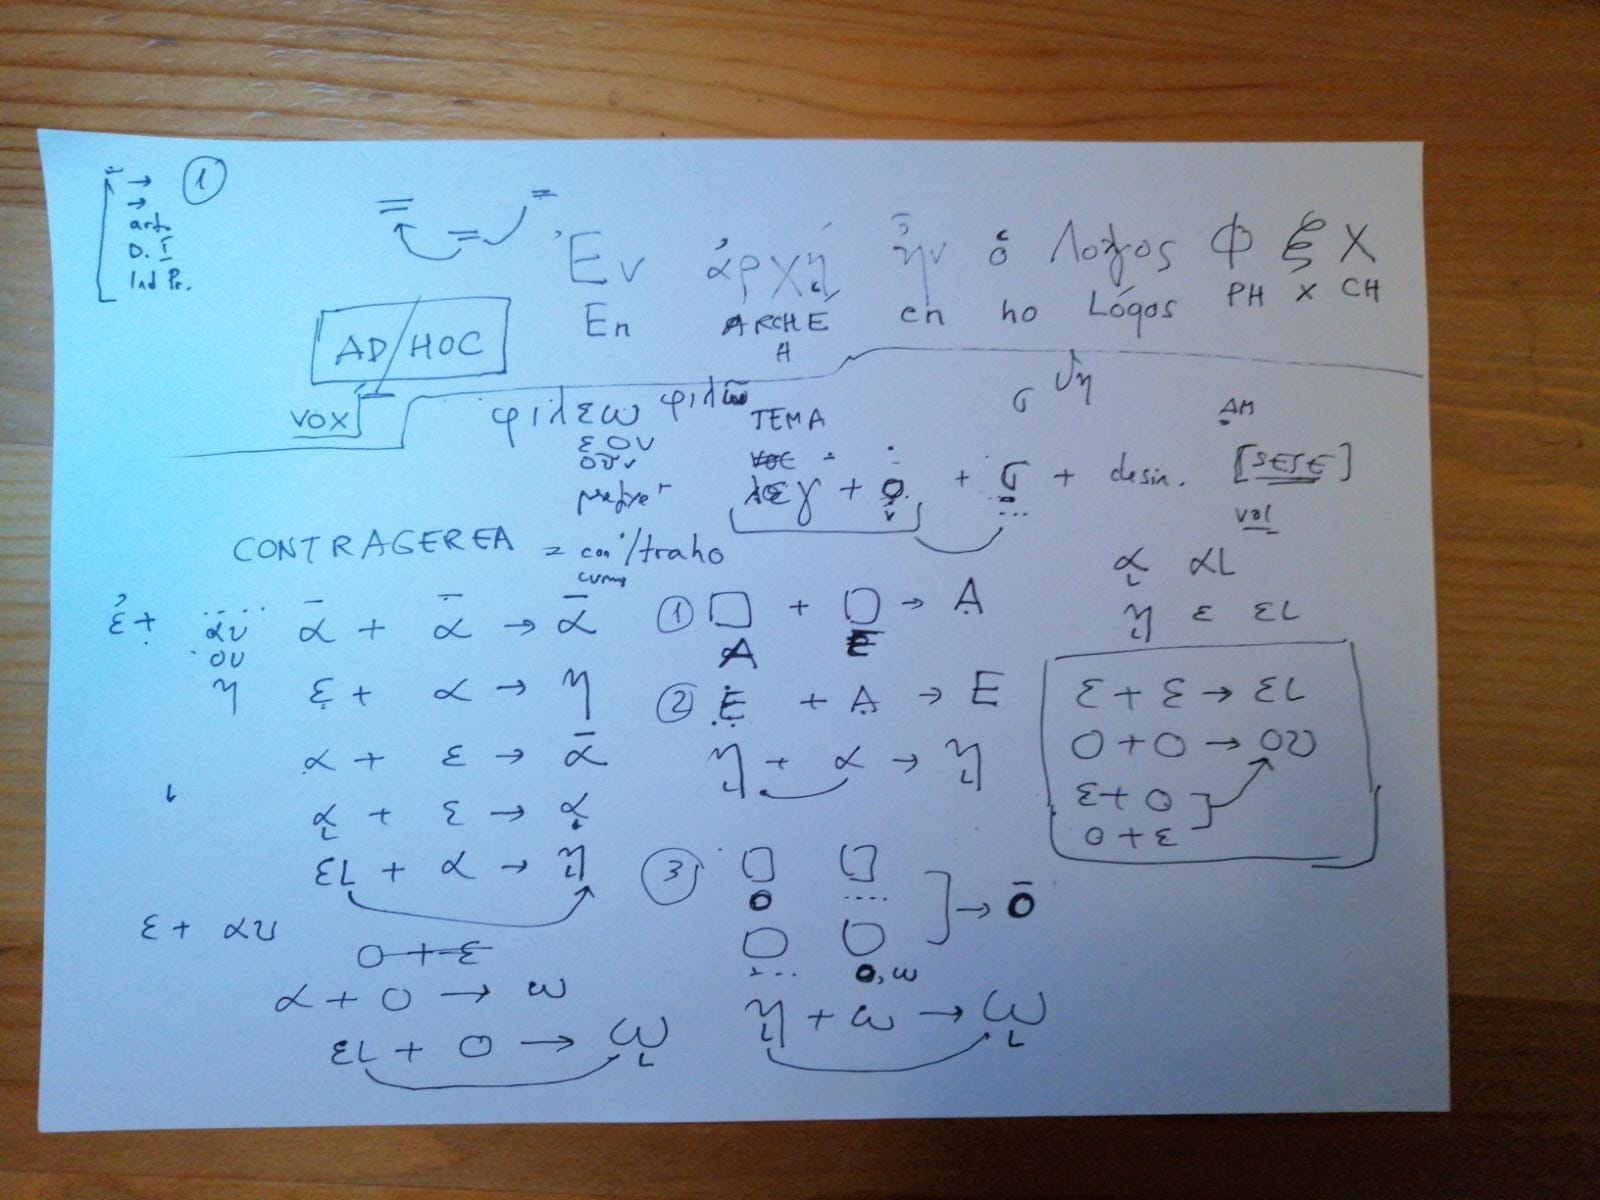 ①
art.
D. I
Ind Pr.
Ἐν ἀρχῇ ἦν ὁ Λογος Φ ξ Χ
En ARCHE en ho Lógos PH X CH
H
AD/HOC
VOX
φιλεω φιλῶ
ε ου
TEMA
σ
AM
λεγ + ο + σ + desin. [SESE]
val
CONTRAGEREA = con/traho
cum
ἐ + αυ ᾱ + ᾱ → ᾱ
ου
η ε + α → η
α + ε → ᾱ
ᾳ + ε → ᾳ
ει + α → ῃ
ε + αυ
ο + ε
α + ο → ω
ει + ο → ῳ
① □ + □ → A
A E
② E + A → E
ῃ + α → ῃ
③ □ □
ο ....
→ ō
□ □
... ο, ω
ῃ + ω → ῳ
ᾳ αι
ῃ ε ει
ε + ε → ει
ο + ο → ου
ε + ο
ο + ε